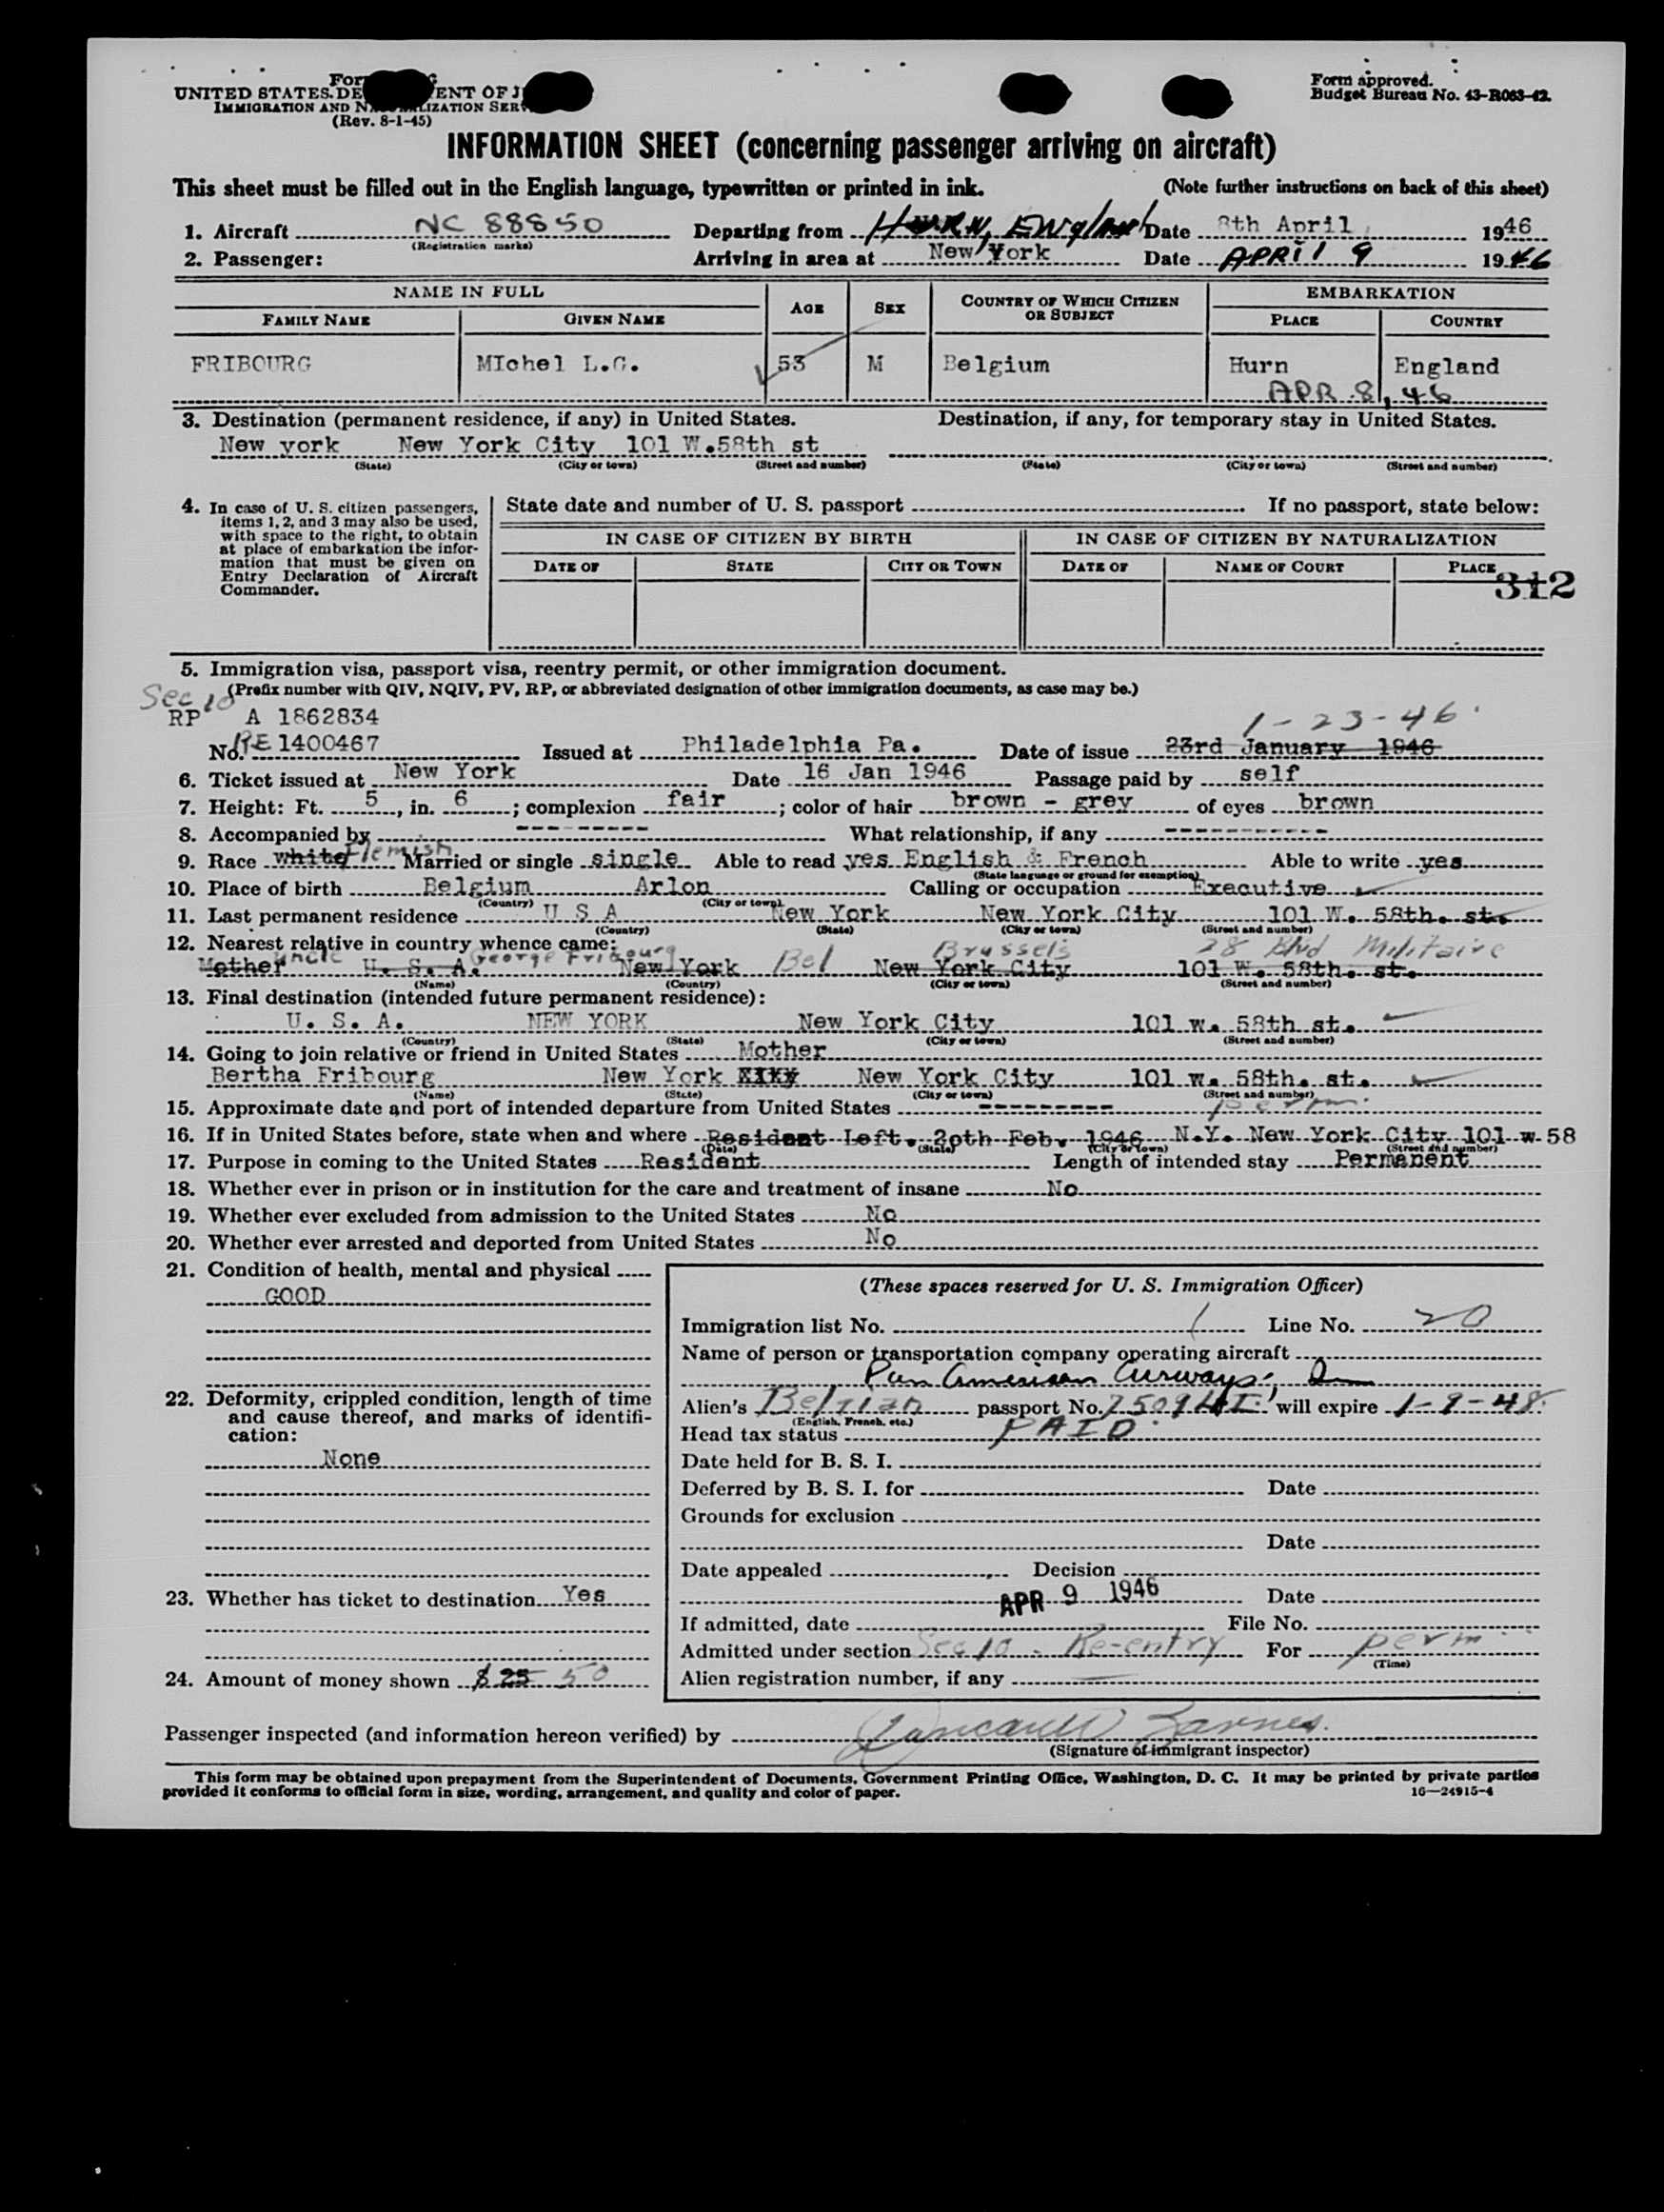 For
UNITED STATES DE ENT OF J
IMMIGRATION AND N LIZATION SERV
(Rev. 8-1-45)
Form approved.
Budget Bureau No. 43-R063-42.
INFORMATION SHEET (concerning passenger arriving on aircraft)
This sheet must be filled out in the English language, typewritten or printed in ink. (Note further instructions on back of this sheet)
1. Aircraft NC 88850 Departing from HURN, ENGLAND Date 8th April, 1946
(Registration marks)
2. Passenger: Arriving in area at New York Date APRIL 9 1946
NAME IN FULL AGE SEX COUNTRY OF WHICH CITIZEN OR SUBJECT EMBARKATION
FAMILY NAME GIVEN NAME PLACE COUNTRY
FRIBOURG MIchel L.G. 53 M Belgium Hurn England
APR 8, 46
3. Destination (permanent residence, if any) in United States. Destination, if any, for temporary stay in United States.
New york New York City 101 W.58th st
(State) (City or town) (Street and number) (State) (City or town) (Street and number)
4. In case of U. S. citizen passengers, items 1, 2, and 3 may also be used, with space to the right, to obtain at place of embarkation the information that must be given on Entry Declaration of Aircraft Commander.
State date and number of U. S. passport If no passport, state below:
IN CASE OF CITIZEN BY BIRTH IN CASE OF CITIZEN BY NATURALIZATION
DATE OF STATE CITY OR TOWN DATE OF NAME OF COURT PLACE
312
5. Immigration visa, passport visa, reentry permit, or other immigration document.
Sec 10 (Prefix number with QIV, NQIV, PV, RP, or abbreviated designation of other immigration documents, as case may be.)
RP A 1862834 1-23-46
No. RE 1400467 Issued at Philadelphia Pa. Date of issue 23rd January 1946
6. Ticket issued at New York Date 16 Jan 1946 Passage paid by self
7. Height: Ft. 5, in. 6; complexion fair; color of hair brown - grey of eyes brown
8. Accompanied by --------- What relationship, if any -----------
9. Race white Flemish Married or single single Able to read yes English & French Able to write yes
(State language or ground for exemption)
10. Place of birth Belgium Arlon Calling or occupation Executive
(Country) (City or town)
11. Last permanent residence U S A New York New York City 101 W. 58th. st.
(Country) (State) (City or town) (Street and number)
12. Nearest relative in country whence came:
Uncle George Fribourg Bel Brussels 28 Blvd Militaire
Mother U. S. A. New York New York City 101 W. 58th. st.
(Name) (Country) (City or town) (Street and number)
13. Final destination (intended future permanent residence):
U. S. A. NEW YORK New York City 101 w. 58th st.
(Country) (State) (City or town) (Street and number)
14. Going to join relative or friend in United States Mother
Bertha Fribourg New York New York City 101 w. 58th. st.
(Name) (State) (City or town) (Street and number)
15. Approximate date and port of intended departure from United States --------- perm.
16. If in United States before, state when and where Resident Left. 20th Feb. 1946 N.Y. New York City 101 w 58
(Date) (State) (City or town) (Street and number)
17. Purpose in coming to the United States Resident Length of intended stay Permanent
18. Whether ever in prison or in institution for the care and treatment of insane No
19. Whether ever excluded from admission to the United States No
20. Whether ever arrested and deported from United States No
21. Condition of health, mental and physical
GOOD
22. Deformity, crippled condition, length of time and cause thereof, and marks of identification:
None
23. Whether has ticket to destination Yes
24. Amount of money shown $ 25 50
(These spaces reserved for U. S. Immigration Officer)
Immigration list No. 1 Line No. 20
Name of person or transportation company operating aircraft
Pan American Airways,
Alien's Belgian passport No. will expire 1-9-48
(English, French, etc.)
Head tax status PAID
Date held for B. S. I.
Deferred by B. S. I. for Date
Grounds for exclusion
Date
Date appealed Decision
APR 9 1946 Date
If admitted, date File No.
Admitted under section Sec 10 - Re-entry For perm
(Time)
Alien registration number, if any
Passenger inspected (and information hereon verified) by
(Signature of immigrant inspector)
This form may be obtained upon prepayment from the Superintendent of Documents, Government Printing Office, Washington, D. C. It may be printed by private parties
provided it conforms to official form in size, wording, arrangement, and quality and color of paper. 16—24915-4